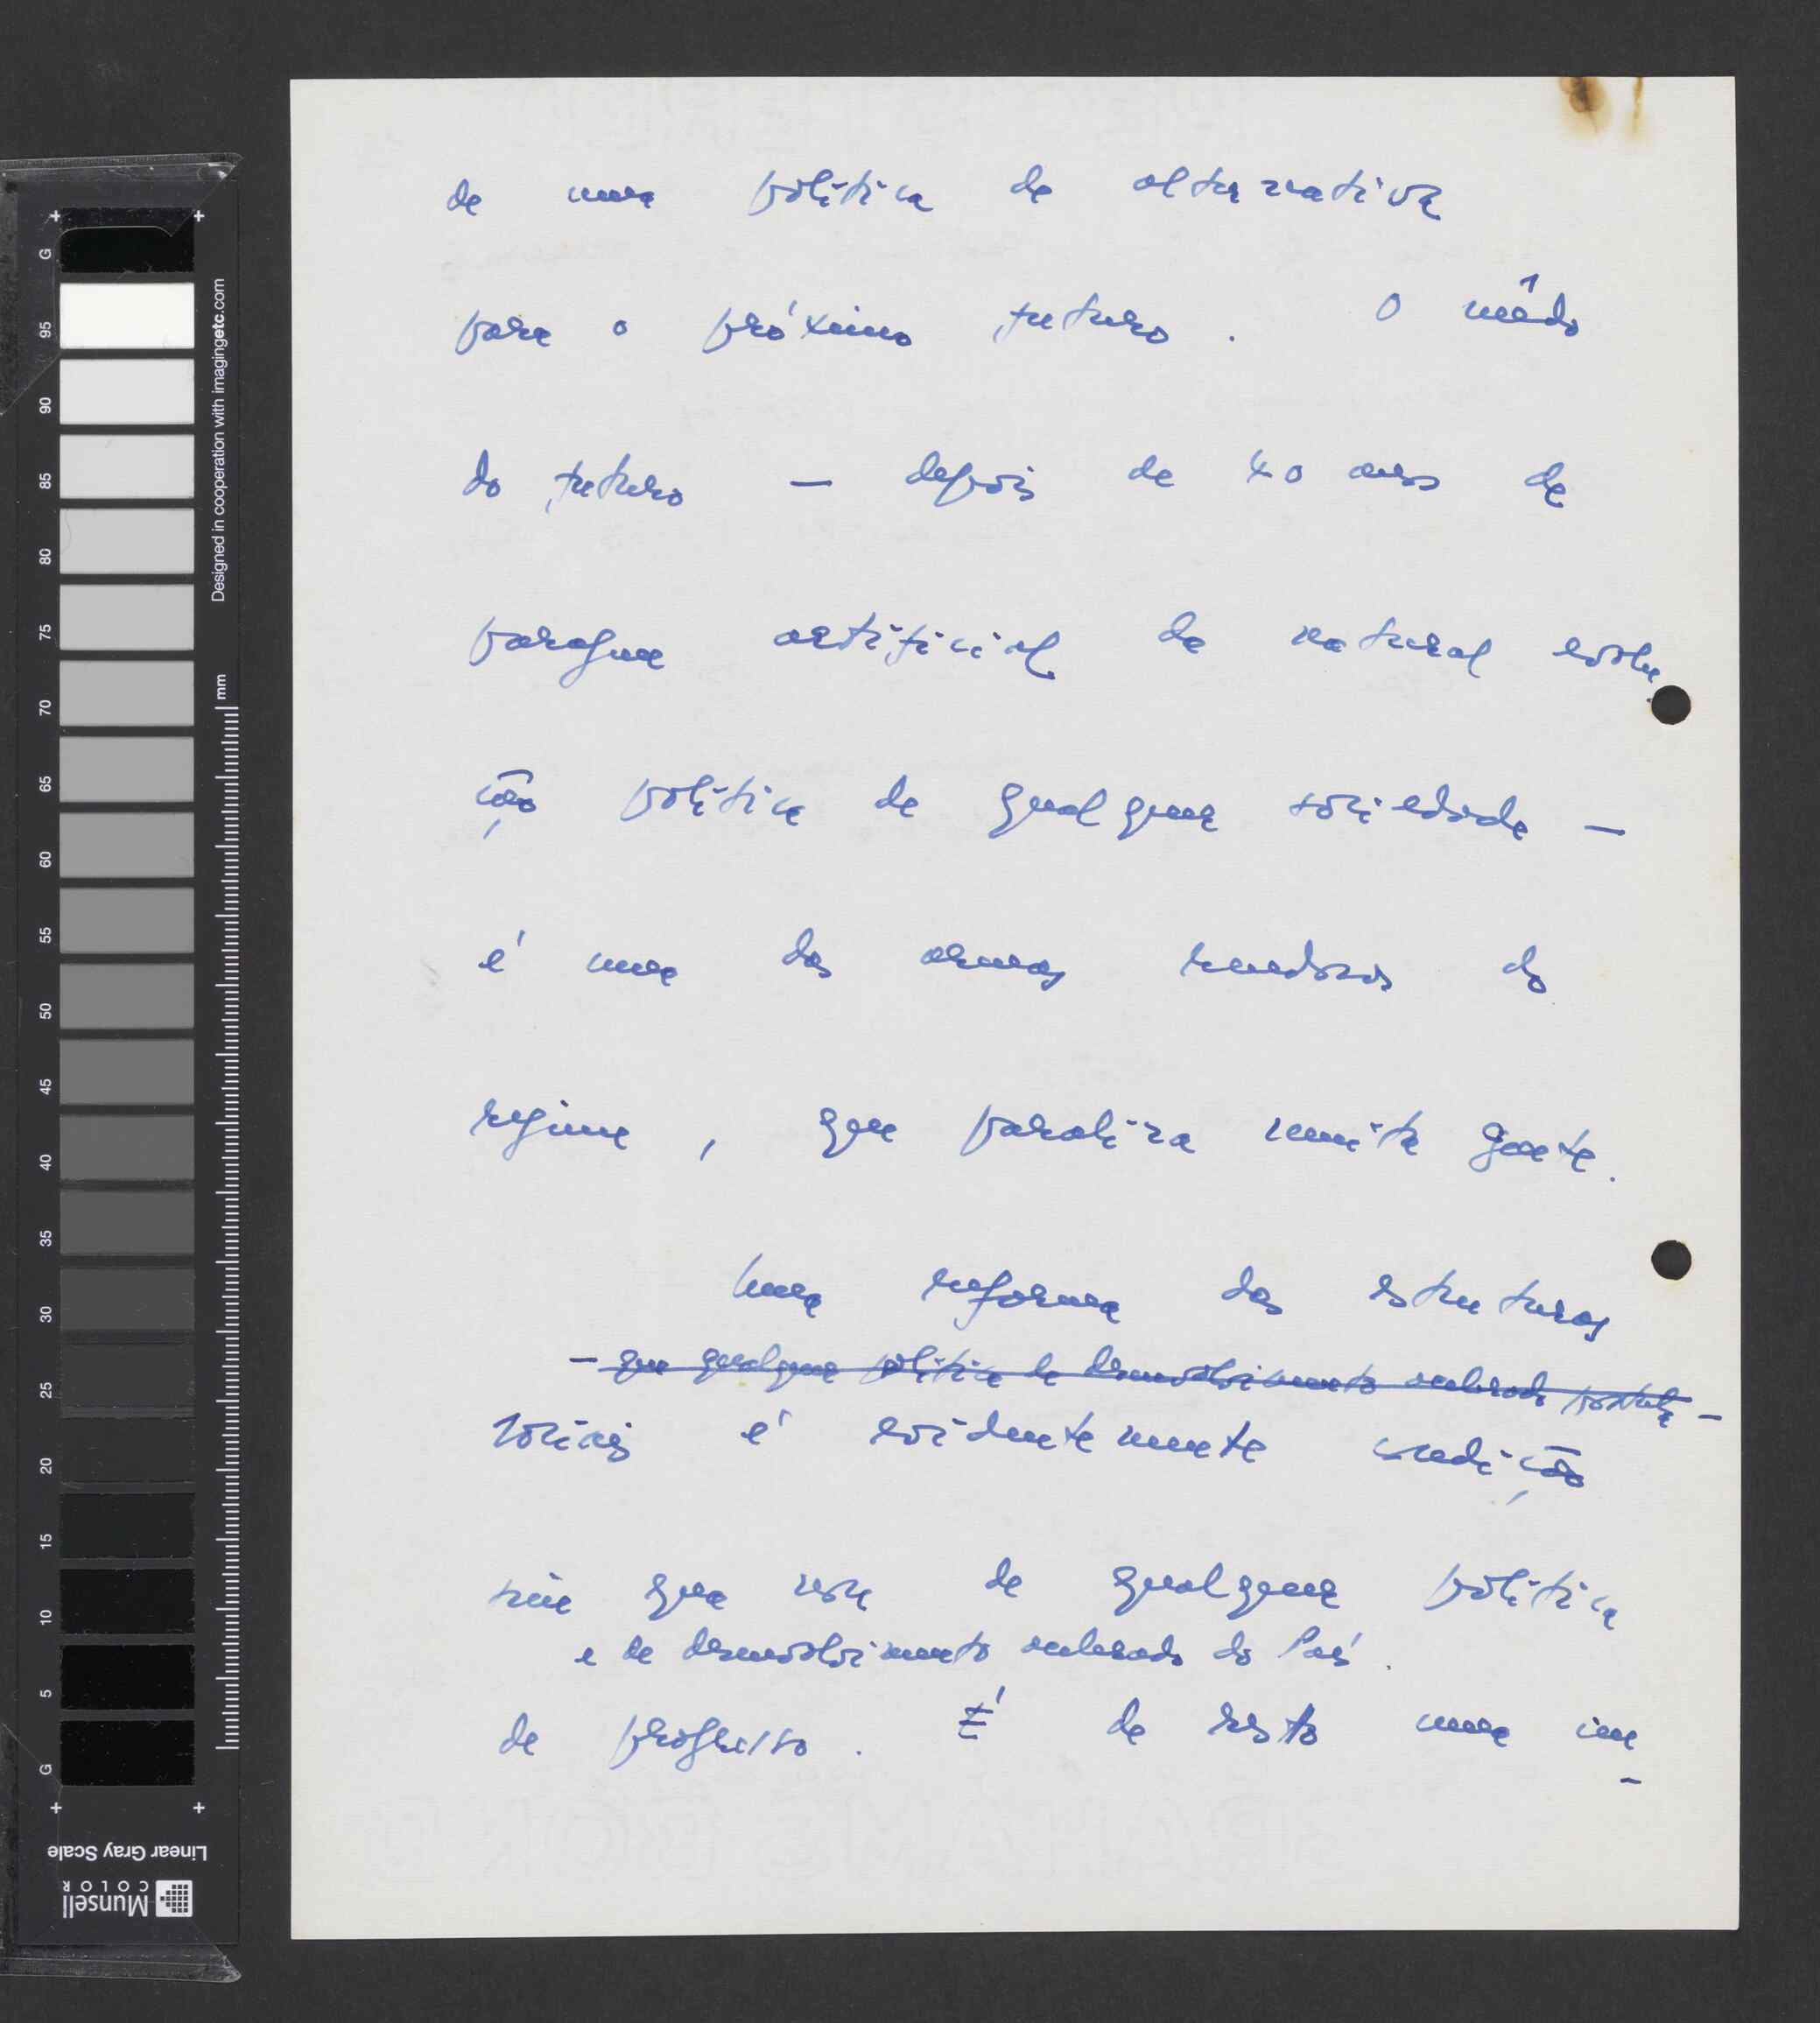 de uma política de alternativa
para o próximo futuro. O mêdo
do futuro — depois de 40 anos de
paragem artificial da natural evolu
ção política de qualquer sociedade —
é uma das armas do
regime, que paraliza muita gente.
Uma reforma das estruturas
— que qualquer política de desenvolvimento acelerado postula —
sociais é evidentemente condição
sine qua non de qualquer política
e de desenvolvimento acelerado do País.
de progresso. É de resto uma im-
G
95
90
85
80
75
70
65
60
55
50
45
40
35
30
25
20
15
10
5
G
mm
Designed in cooperation with imagingetc.com
Linear Gray Scale
Munsell
COLOR